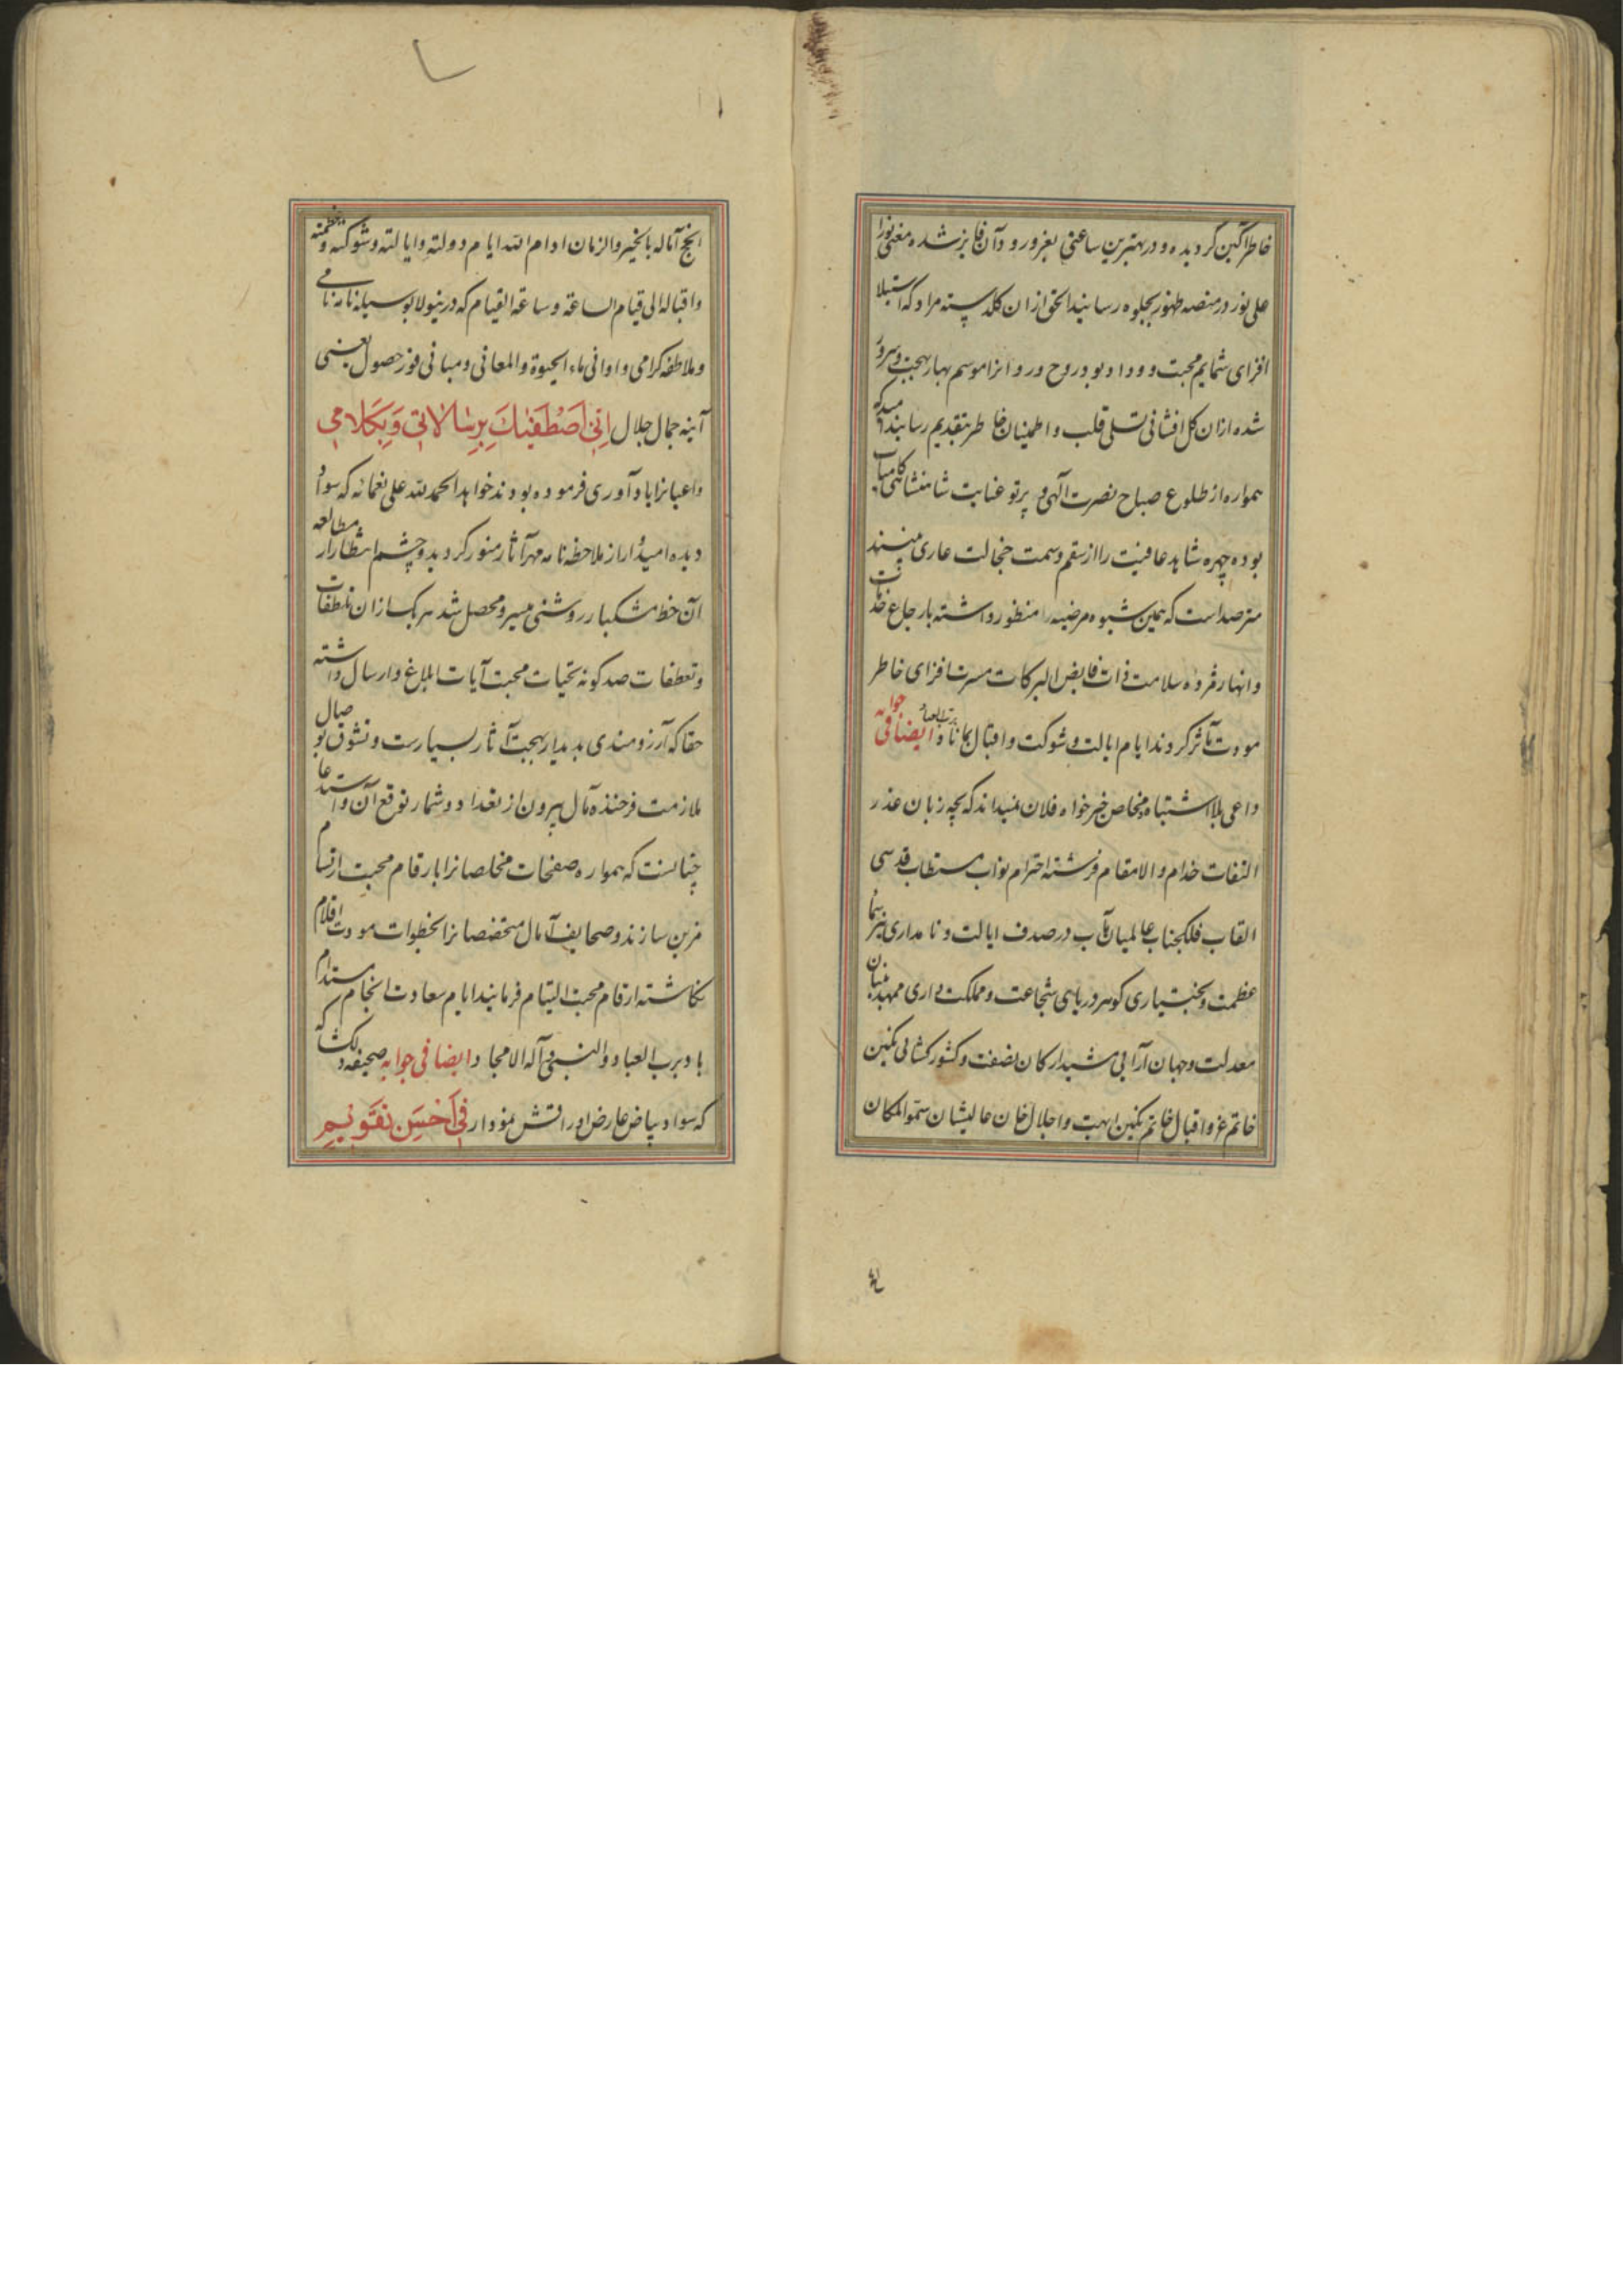 خاطر آکین کردیده و در بهترین ساعتی بغز ورود آن فایز شده معنی نورا
علی نور در منصه ظهور بجلوه رسانید الحق ازان کلدسته مراد که استیلا
افزای شمایم محبت و وداد بود روح و روانرا موسم بهار بهجت و سرور
شده ازان کل افشانی تسلی قلب و اطمینان خاطر بتقدیم رسانید امید که
همواره از طلوع صباح نصرت آلهی و پرتو عنایت شاهنشاهی کامیاب
بوده چهره شاهد عافیت را از سقم و سمت خجالت عاری بینند
مترصد است که همین شیوه مرضیه را منظور داشته بارجاع خدمات
و انهار مژده سلامت ذات فایض البرکات مسرت افزای خاطر
مودت مآثر کردند ایام ایالت و شوکت و اقبال بکاناد برب العباد ایضا فی جوابه
داعی بلا اشتباه و مخلص خیر خواه فلان نمیداند که بچه زبان عذر
التفات خدام والامقام فرشته احترام نواب مستطاب قدسی
القاب فلکجناب عالمیان مآب در صدف ایالت و نامداری نیر سما
عظمت و بختیاری کوهر دریای شجاعت و مملکت داری ممهد بنیان
معدلت و جهان آرایی مشید ارکان نصفت و کشور کشایی نکین
خاتم عز و اقبال خاتم نکین ابهت و اجلال خان عالیشان سمو المکان
انجح آماله بالخیر و الزمان ادام الله ایام دولته و ایالته و شوکته و عظمته
و اقباله الی قیام الساعة و ساعة القیام که درینولا بوسیله نامه نامی
و ملاطفه کرامی و اوانی ماء الحیوة و المعانی و مبانی فوز حصول یعنی
آینه جمال جلال اِنِّی اصْطَفَیْتُكَ بِرِسَالَاتِی وَبِكَلَامِی
داعیانرا یاد آوری فرموده بودند خواهد الحمد لله علی نعمائه که سواد
دیده امیدوار از ملاحظه نامه مهر آثار منور کردید و چشم انتظار از مطالعه
آن خط مشکبار روشنی میسر و محصل شد هر یک ازان تلطفات
و تعطفات صد کونه تحیات محبت آیات ابلاغ و ارسال داشته
حقا که آرزومندی بدیدار بهجت آثار بسیارست و تشوق بوصال
ملازمت فرخنده مآل بیرون از تعداد و شمار توقع آن و استدعا
چنانست که همواره صفحات مخلصانرا بارقام محبت ارتسام
مزین سازند و صحایف آمال متخصصانرا بخطوات مودت اقلام
نکاشته ارقام محبت التیام فرمایند ایام سعادت انجام مستدام
باد برب العباد و النبی و آله الامجاد ایضا فی جوابه صحیفه دلکشا که
که سواد بیاض عارض اوراقش نمودار فِی اَحْسَنِ تَقْوِیمٍ